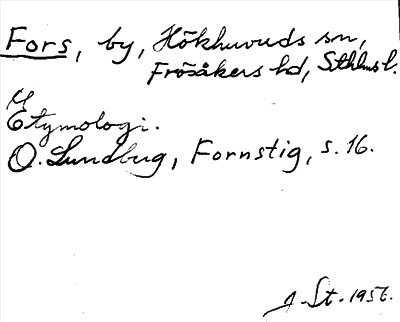 Fors, by, Hökhuvuds sn,
Frösåkers hd, Sthlms l.
Etymologi.
O. Lundbug, Fornstig, s. 16.
St. 1956.